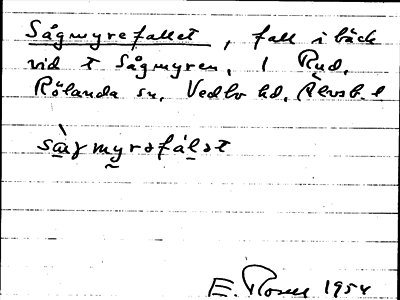 Sågmyrefallet, fall i bäck
vid t Sågmyren, 1 Rud,
Rölanda sn, Vedbo hd, Älvsb. l
sàγmyrəfálət
E. Rosell 1954